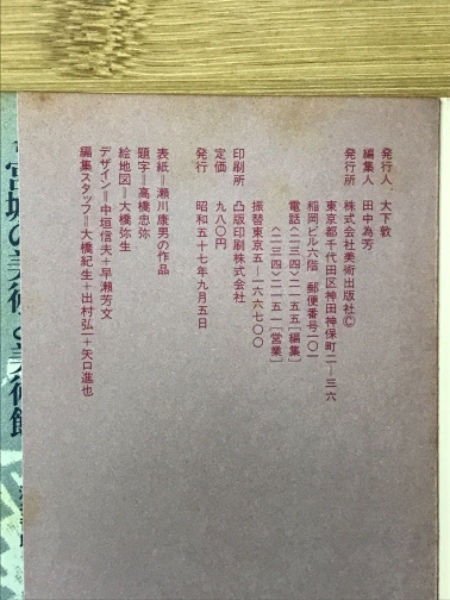 発行人 大下敦
編集人 田中為芳
発行所 株式会社美術出版社Ⓒ
東京都千代田区神田神保町二−三六
稲岡ビル六階 郵便番号一〇一
電話〈二三四〉二一五五[編集]
〈二三四〉二一五一[営業]
振替東京五−一六六七〇〇
印刷所 凸版印刷株式会社
定価 九八〇円
発行 昭和五十七年九月五日
表紙=瀬川康男の作品
題字=高橋忠弥
絵地図=大橋弥生
デザイン=中垣信夫+早瀬芳文
編集スタッフ=大橋紀生+出村弘一+矢口進也
宮城の美術
美術館